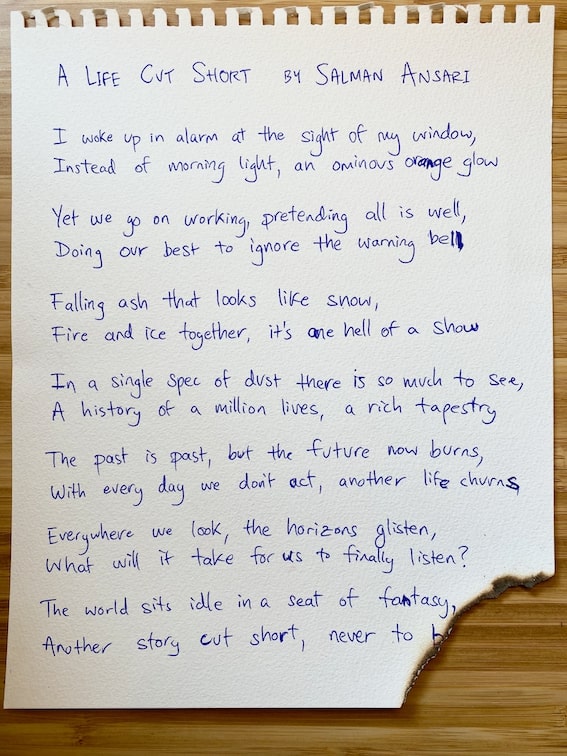 A LIFE CUT SHORT BY SALMAN ANSARI
I woke up in alarm at the sight of my window,
Instead of morning light, an ominous orange glow
Yet we go on working, pretending all is well,
Doing our best to ignore the warning bell
Falling ash that looks like snow,
Fire and ice together, it's one hell of a show
In a single spec of dust there is so much to see,
A history of a million lives, a rich tapestry
The past is past, but the future now burns,
With every day we don't act, another life churns,
Everywhere we look, the horizons glisten,
What will it take for us to finally listen?
The world sits idle in a seat of fantasy,
Another story cut short, never to